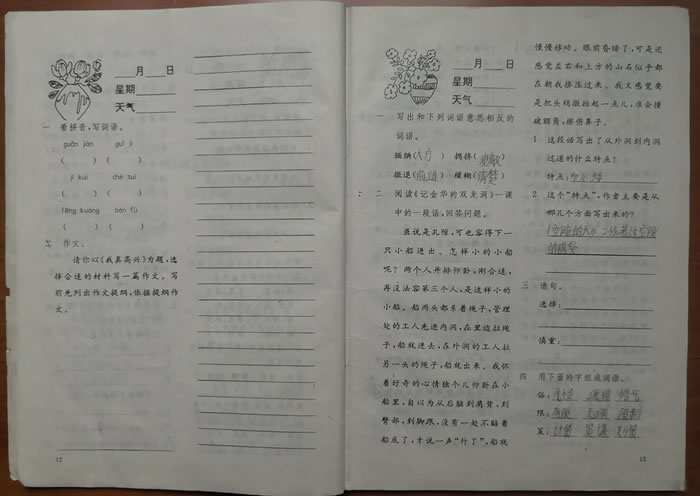 ____月____日
星期________
天气________
一 看拼音,写词语。
guān jiàn gu jì
( ) ( )
jī kuì chè tuì
( ) ( )
fēng kuáng bēn fù
( ) ( )
作文。
请你以《我真高兴》为题,选
择合适的材料写一篇作文。写
前先列出作文提纲,依据提纲作
文。
12
____月____日
星期________
天气________
一 写出和下列词语意思相反的
词语。
腼腆(大方) 拥挤(
撤退(前进) 模糊(清楚)
二 阅读《记金华的双龙洞》一课
中的一段话,回答问题。
虽说是孔隙,可也容得下一
只小船进出。怎样小的小船
呢?两个人并排仰卧,刚合适,
再没法容第三个人,是这样小的
小船。船两头都系着绳子,管理
处的工人先进内洞,在里边拉绳
子,船就进去,在外洞的工人拉
另一头的绳子,船就出来。我怀
着好奇的心情独个儿仰卧在小
船里,自以为从后脑到肩背,到
臀部,到脚跟,没有一处不贴着
船底了,才说一声“行了”,船就
慢慢移动。眼前昏暗了,可是还
感觉左右和上方的山石似乎都
在朝我挤压过来。我又感觉要
是把头稍微抬起一点儿,准会撞
破额角,擦伤鼻子。
1 这段话写出了从外洞到内洞
过道的什么特点?
特点:
2 这个“特点”,作者主要是从
哪几个方面写出来的?
三 造句。
选择:
慎重:
四 用下面的字组成词语。
俗:
限:
策:
13